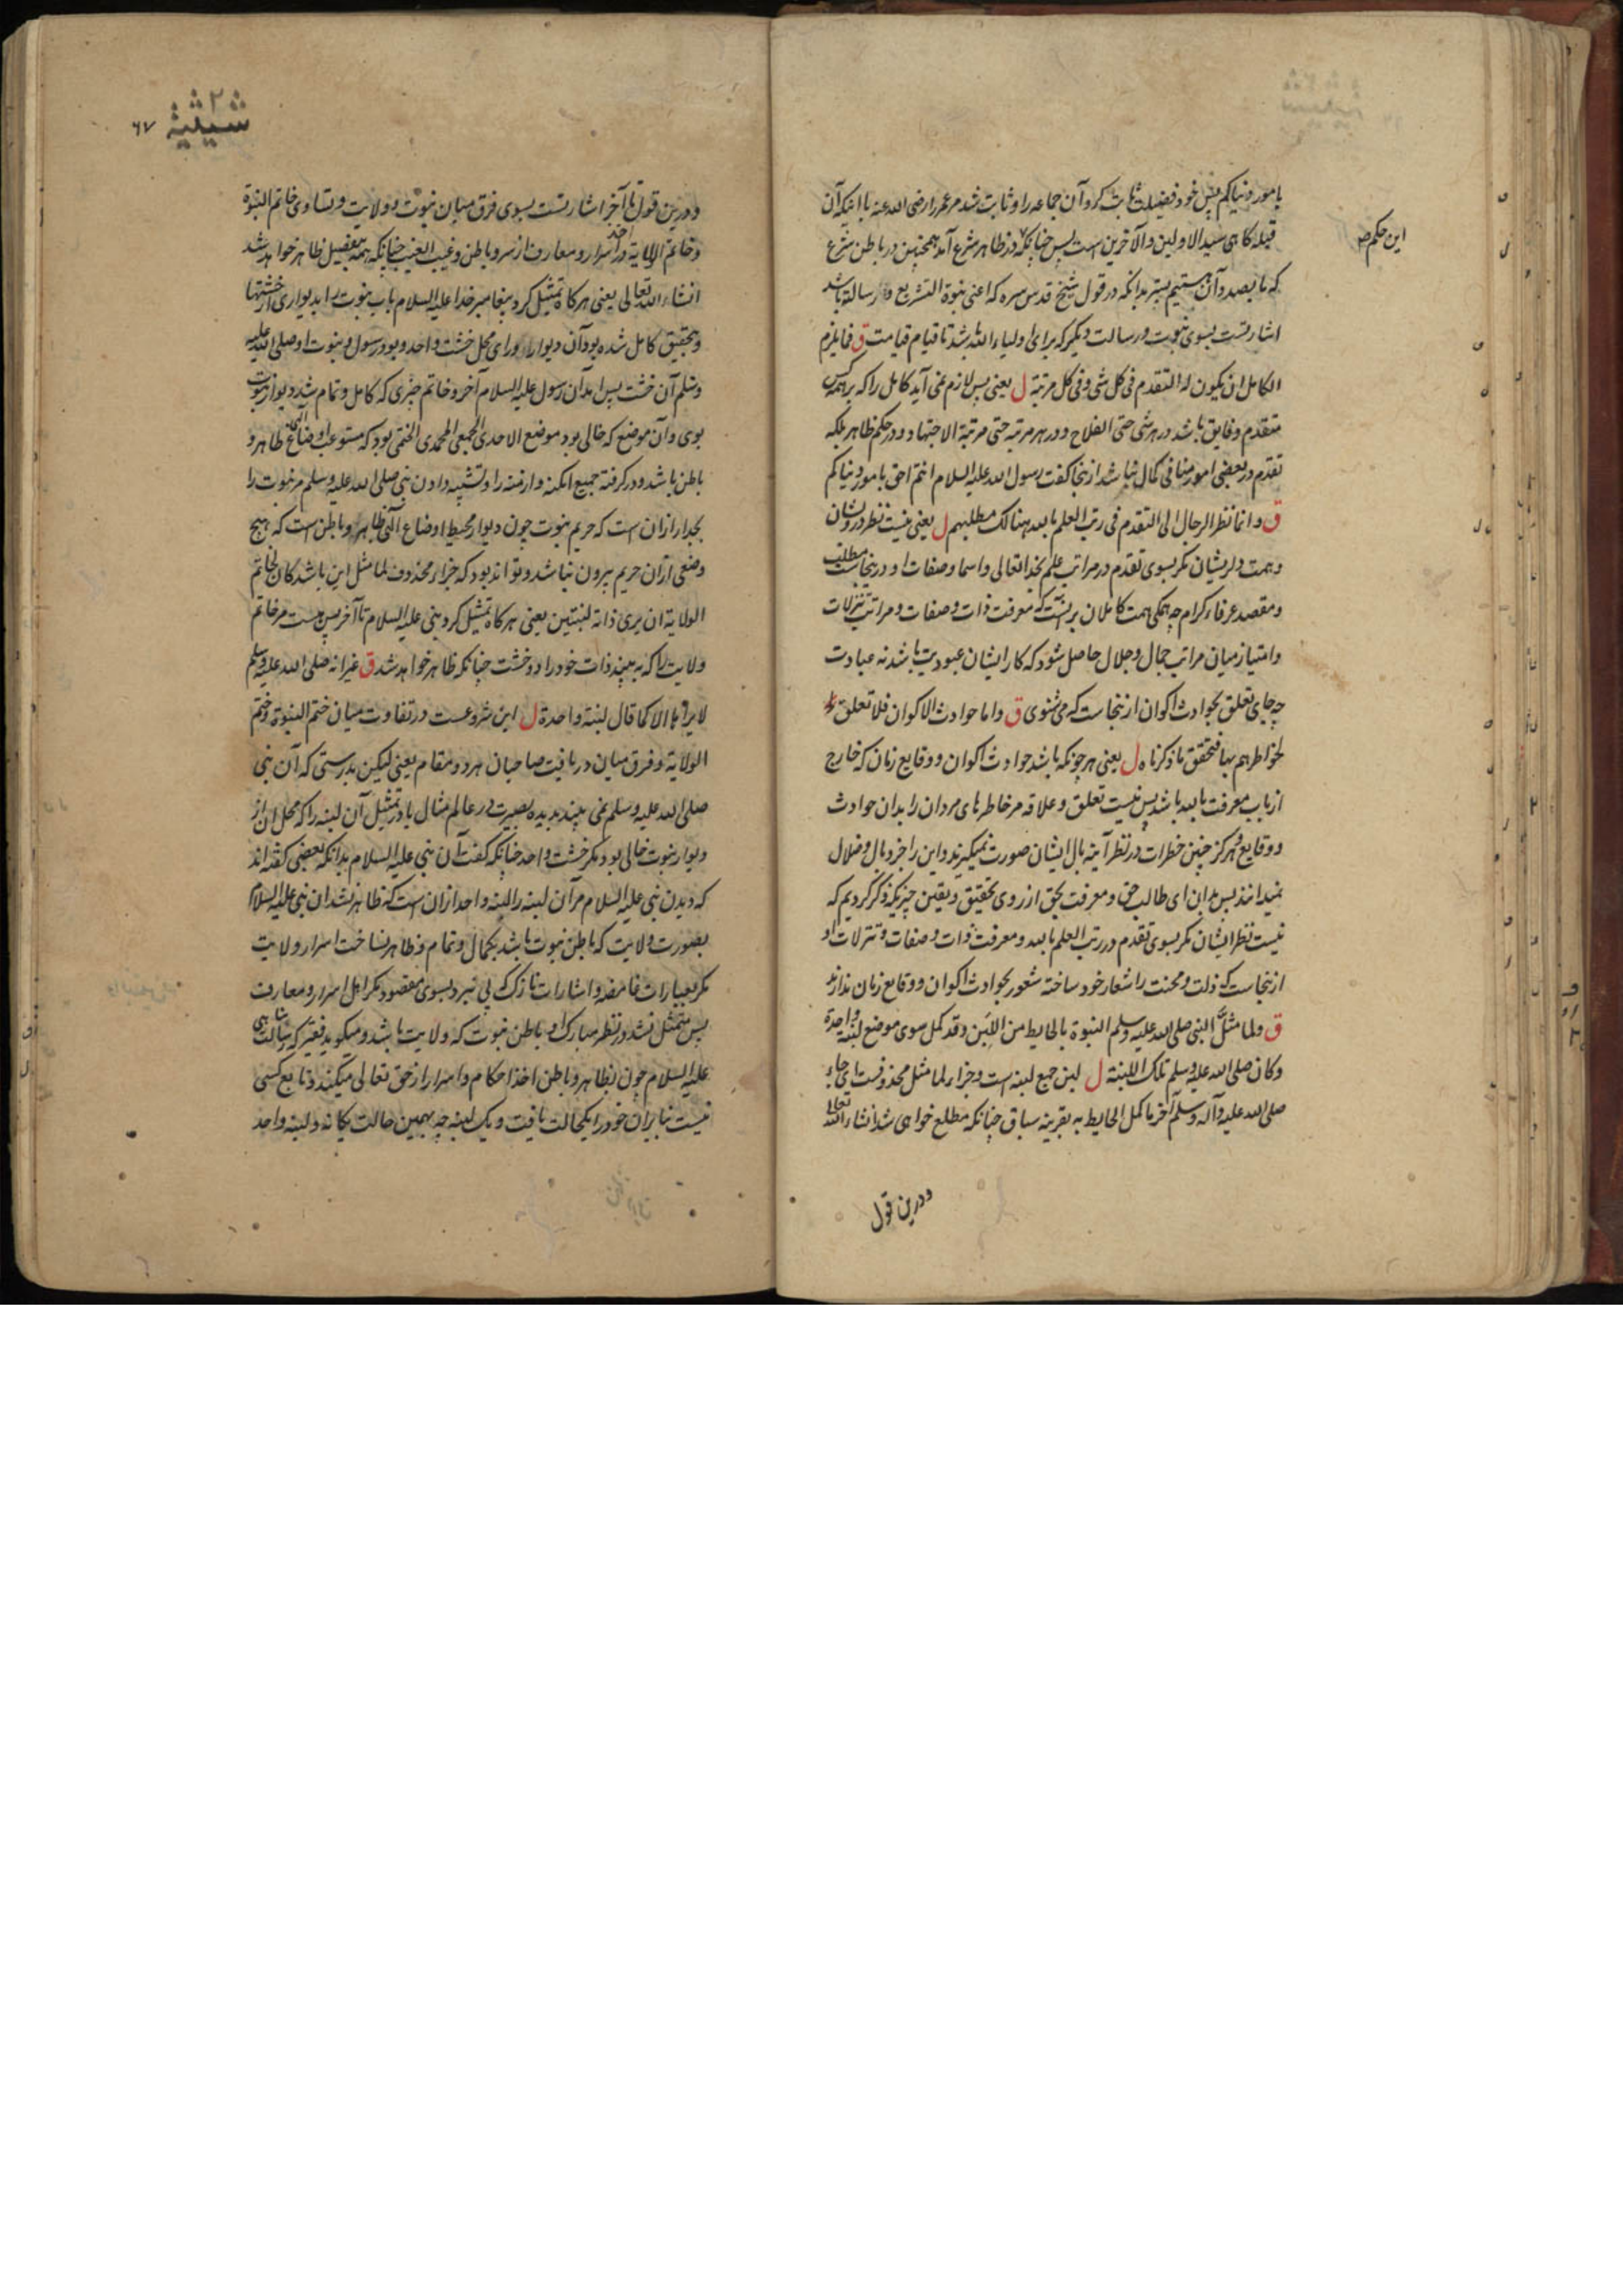 بامور دنیاکم پس خود فضیلت ثابت کرد آن جماعه را و ثابت شد مر عمر را رضی الله عنه با اینکه آن
این حکم
قبله کاهی سید الاولین والآخرین است پس چنانکه در ظاهر شرع آمد همچنین در باطن شرع
که ما بصدد آن هستیم بدانکه در قول شیخ قدس سره که اعنی نبوة التشریع و رسالته باشد
اشارتست بسوی نبوت و رسالت دیکر که برای اولیاء الله باشد تا قیام قیامت ق فما یلزم
الکامل ان یکون له التقدم فی کل شی و فی کل مرتبة ل یعنی پس لازم نمی آید کامل را که بر همه کس
متقدم و فایق باشد در هر شی حتی الفلاح و در هر مرتبه حتی مرتبة الاجتهاد و در حکم ظاهر بلکه
تقدم در بعضی امور منافی کمال نباشد ازینجا کفت رسول الله علیه السلام انتم احق بامور دنیاکم
ق و انما نظر الرجال الی التقدم فی رتب العلم بالله هنالک مطلبهم ل یعنی نیست نظر درویشان
و همت دلریشان مکر بسوی تقدم در مراتب علم بخدا تعالی و اسما و صفات او و درینجاست مطلب
و مقصد عرفاء کرام چه همکی همت کاملان برینست که معرفت ذات و صفات و مراتب تنزلات
و امتیاز میان مراتب جمال و جلال حاصل شود که کار ایشان عبودیت باشد نه عبادت
چه جای تعلق بحوادث اکوان ازینجاست که می شنوی ق و اما حوادث الاکوان فلا تعلق
لخواطرهم بها فتحقق ما ذکرناه ل یعنی هر چونکه باشد حوادث اکوان و وقایع زمان که خارج
از باب معرفت بالله باشد پس نیست تعلق و علاقه مر خاطرهای مردان را بدان حوادث
و وقایع و هرکز چنین خطرات در نظر آینه بال ایشان صورت نمیکیرند و این را جز وبال و ضلال
نمیدانند پس بدان ای طالب حق و معرفت بحق از روی تحقیق و یقین چیزیکه ذکر کردیم که
نیست نظر ایشان مکر بسوی تقدم در رتب العلم بالله و معرفت ذات و صفات و تنزلات او
ازینجاست که ذلت و محنت را شعار خود ساخته شعور بحوادث اکوان و وقایع زمان ندارند
ق و لما مثل النبی صلی الله علیه وسلم النبوة بالحایط من اللبن و قد کمل سوی موضع لبنة واحدة
و کان صلی الله علیه وسلم تلک اللبنة ل لبن جمع لبنه است و جزاء لما مثل محذوفست ای جاء
صلی الله علیه و آله وسلم آخر ما کمل الحایط به بقرینه سباق چنانکه مطلع خواهی شد انشاء الله تعالی
ودرین قول
٦٧
ودرین قول تا آخر اشارتست بسوی فرق میان نبوت و ولایت و تساوی خاتم النبوة
و خاتم الولایة در اخذ اسرار و معارف از سر و باطن و غیب الغیب چنانکه همه بتفصیل ظاهر خواهد شد
انشاء الله تعالی یعنی هرکاه تمثیل کرد پیغامبر خدا علیه السلام باب نبوت را بدیواری از خشتها
و بتحقیق کامل شده بود آن دیوار ورای محل خشت واحد و بود رسول و نبوت او صلی الله علیه
وسلم آن خشت پس آمد آن رسول علیه السلام آخر و خاتم چیزی که کامل و تمام شد دیوار نبوت
بوی و آن موضع که خالی بود موضع الاحدی الجمعی المحمدی الختمی بود که مستوعب اوضاع ظاهر و
باطن باشد و در کرفته جمیع امکنه و ازمنه را و تشبیه دادن نبی صلی الله علیه وسلم مر نبوت را
بجدار ازان است که حریم نبوت چون دیوار محیط اوضاع الهی ظاهر و باطن است که هیچ
وضعی از آن حریم بیرون نباشد و تواند بود که جزاء محذوف لما مثل این باشد کان لخاتم
الولایة ان یری ذاته لبنتین یعنی هرکاه تمثیل کرد نبی علیه السلام تا آخر پس هست مر خاتم
ولایت را که به بیند ذات خود را دو خشت چنانکه ظاهر خواهد شد ق غیر انه صلی الله علیه وسلم
لا یراها الا کما قال لبنة واحدة ل این شروعست در تفاوت میان ختم النبوة و ختم
الولایة و فرق میان دریافت صاحبان هر دو مقام یعنی لیکن بدرستی که آن نبی
صلی الله علیه وسلم نمی بیند بدیده بصیرت در عالم مثال یا در تمثیل آن لبنه را که محل آن از
دیوار نبوت خالی بود مکر خشت واحد چنانکه کفت آن نبی علیه السلام بدانکه بعضی کفته اند
که دیدن نبی علیه السلام مر آن لبنه را لبنه واحد ازان است که ظاهر نشد آن نبی علیه السلام
بصورت ولایت که باطن نبوت باشد بکمال و تمام و ظاهر نساخت اسرار ولایت
مکر بعبارات غامضه و اشارات نازک که پی نبرد بسوی مقصود مکر اهل اسرار و معارف
پس متمثل نشد در نظر مبارک او باطن نبوت که ولایت باشد و میکوید فقیر که رسالت پناهی
علیه السلام چون بظاهر و باطن اخذ احکام و اسرار از حق تعالی میکند و تابع کسی
نیست بنابران خود را بیکحالت یافت و یک لبنه چه بهمین حالت یکانه دو لبنه واحد